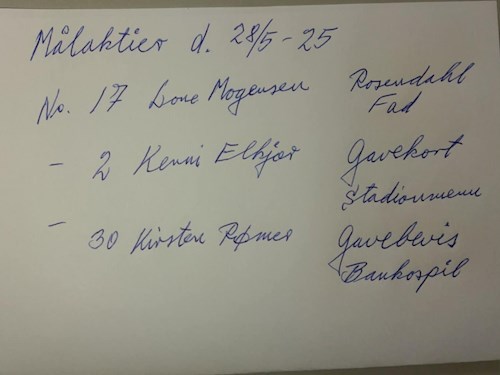 Målaktier d. 28/5-25
No. 17 Lone Mogensen Rosendahl
Fad
- 2 Kenni Elkjær Gavekort
Stadionmenu
- 30 Kirsten Rømer Gavebevis
Bankospil